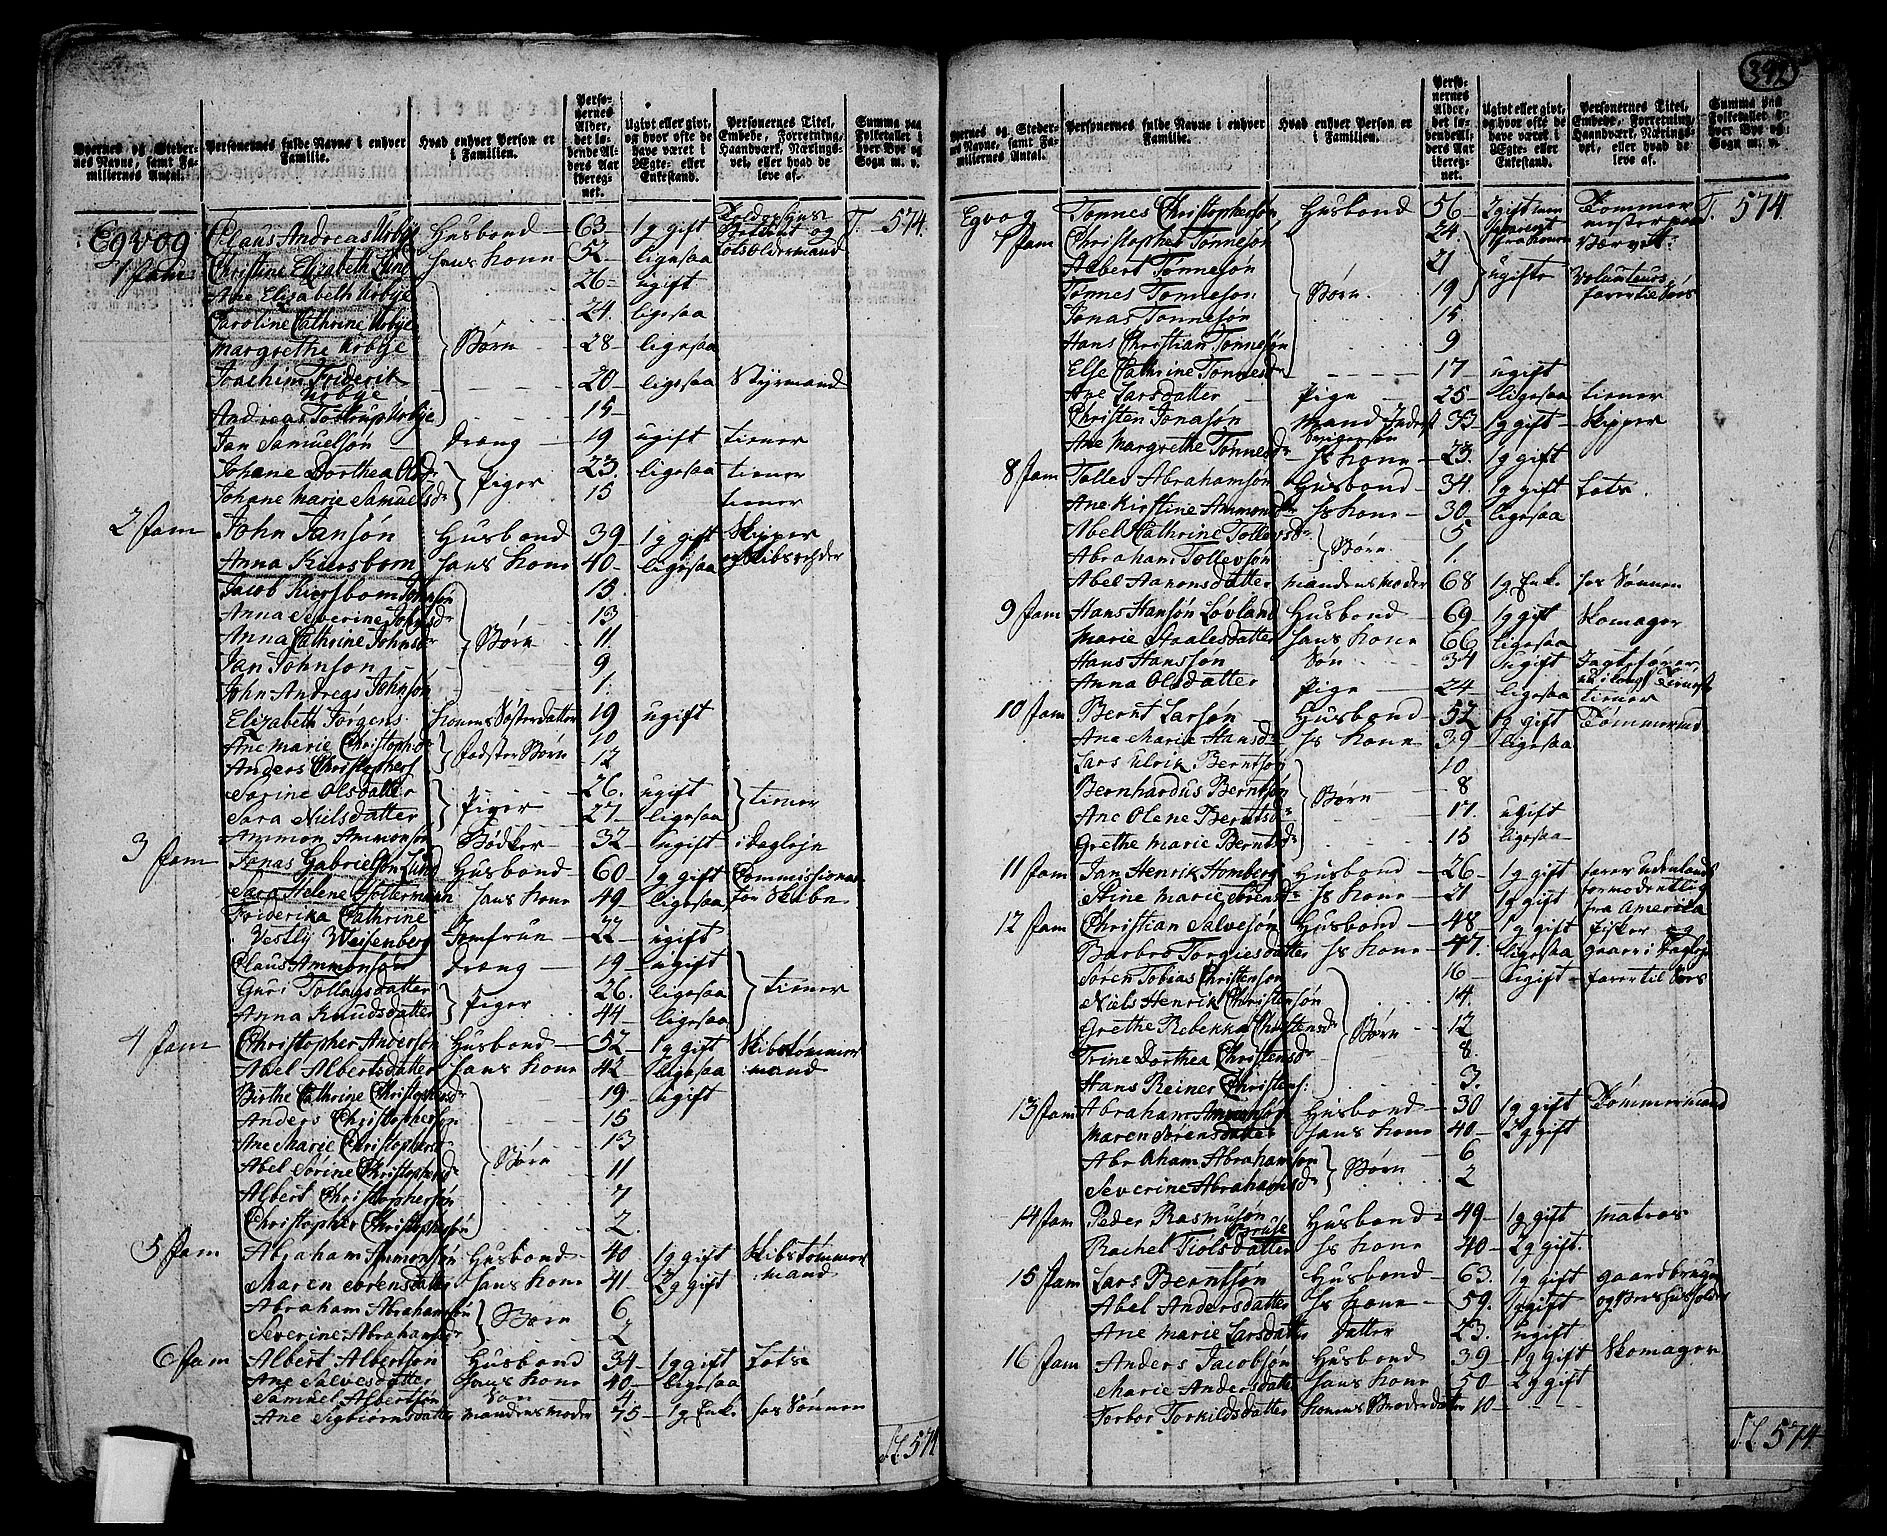 342
Byernes og Steder-
nes Navne, samt Fa-
miliernes Antal.
Personernes fulde Navne i enhver
Familie.
Hvad enhver Person er
i Familien.
Perso-
nernes
Alder,
det lø-
bende Al-
ders Aar
ibereg-
net.
Ugivt eller givt,
og hvor ofte de
have været i
Ægte- eller
Enkestand.
Personernes Titel,
Embede, Forretning,
Haandværk, Nærings-
vei, eller hvad de
leve af.
Summa paa
Folketallet i
hver Bye og
Sogn m. v.
Egvog Claus Andreas Urbye Husbond 63 1 g gift og T. 574.
1 fam Christine Elizabeth Lund hans Kone 52 ligesaa Lotsoldermand
Ane Elisabeth Urbye 26 ugift
Caroline Cathrine Urbye 24 ligesaa
Margrethe Urbye Børn 28 ligesaa
Joachim Friderik
Urbye 20 ligesaa Styrmand
Andreas Tostrup Urbye 15
Jan Samuelsøn Dreng 19 ugift tiener
Johane Dorthea Olsdr Piger 23 ligesaa tiener
Johane Marie Samuelsdr 15 tiener
2 fam John Jansøn Husbond 39 1 g gift Skipper
Anna Kiersbom hans Kone 40 ligesaa og Skibsrehder
Jacob Kiersbom Johnsøn 15.
Anna Severine Johnsdr 13
Anna Cathrine Johnsdr Børn 11.
Jan Johnson 9
John Andreas Johnsøn 1.
Elizabeth Jørgens. Konens Søsterdatter 19 ugift
Ane Marie Christophdr Fostre Børn 10
Anders Christophers 12
Sorine Olsdatter Piger 26. ugift tiener
Sara Nielsdatter 27 ligesaa
Ammon Ammonsøn Bødker 32 ugift i Dagleje
3 fam Jonas Gabrielsøn Lund Husbond 60 1 g gift Commissionair
Sara Helene Holterman hans Kone 49 ligesaa for Skibe
Friderika Cathrine
Vestly Weisenberg Jomfrue 22 ugift
Claus Ammonsøn Dreng 19 ugift
Guri Tollagsdatter Piger 26. ligesaa tiener
Anna Knudsdatter 44 ligesaa
4 fam Christopher Andersøn Husbond 52 1 g gift Skibstømmer
Abel Albertsdatter hans Kone 42 ligesaa mand
Birthe Cathrine Christophersdr 19 ugift
Anders Christophersøn 15
Ane Marie Christophersdr 13
Abel Sørine Christophersdr Børn 11
Albert Christophersøn 7
Christopher Christophersøn 2.
5 fam Abraham Ammonsøn Husbond 40 1 g gift Skibstømmer
Maren Sørensdatter hans Kone 41 2 g gift mand
Abraham Abrahamsøn Børn 6
Severine Abrahamsdr 2
6 fam Albert Albertsøn Husbond 34 1 g gift Lots
Ane Salvesdatter hans Kone 40 ligesaa
Samuel Albertsøn Søn 4
Ane Sigbiørnsdatter mandens moder 75 1 g Enke hos Sønnen
St 574
Byernes og Steder-
nes Navne, samt Fa-
miliernes Antal.
Personernes fulde Navne i enhver
Familie.
Hvad enhver Person er
i Familien.
Perso-
nernes
Alder,
det lø-
bende Al-
ders Aar
iberegn-
net.
Ugivt eller givt,
og hvor ofte de
have været i
Ægte- eller
Enkestand.
Personernes Titel,
Embede, Forretning,
Haandværk, Nærings-
vei, eller hvad de
leve af.
Summa paa
Folketallet i
hver Bye og
Sogn m. v.
Egvog Tønnes Christophersøn Husbond 56 2 gift Tømmer T. 574
7 fam Christopher Tønnesøn 24 mester paa
Albert Tønnesøn 21 ugifte
Tønnes Tønnesøn Børn 19 farer til Søs
Jonas Tønnesøn 15
Hans Christian Tønnesøn 9
Else Cathrine Tønnesdr 17 ugift
Ane Larsdatter Pige 25 ligesaa tiener
Christen Jonasøn 33 1 g gift Skipper
Ane Margrethe Tønnesdr hs Kone 23. 1 g gift
8 fam Tollev Abrahamsøn Husbond 34. 1 g gift Lots.
Ane Kirstine Ammonsdr hs Kone 30. ligesaa
Abel Cathrine Tollevsdr Børn 5
Abraham Tollevsøn 1.
Abel Aanonsdatter mandens moder 68 1 g Enk. hos Sønnen
9 fam Hans Hansøn Løvland Husbond 69 1 g gift Skomager
Marie Aaslesdatter hans Kone 66 ligesaa
Hans Hanssøn Søn 34 ugift
Anna Olsdatter Pige 24 ligesaa tiener
10 fam Bernt Larsøn Husbond 52 1 g gift Tømmermd
Ane Marie Hansdr hs Kone 39 ligesaa
Lars Ulrik Berntsøn 10
Bernhardus Berntsøn Børn 8
Ane Olene Berntsdr 17. ugift
Grethe Marie Berntsdr 15 ligesaa
11 fam Jan Henrik Homberg Husbond 26 1 g gift farer udenlands
Stine Marie Sørensdr hs Kone 21 1 g gift formodentlig
fra Amerika
12 fam Christian Salvesøn Husbond 48 1 g gift fisker og
Barbro Torgiesdatter hs Kone 47. ligesaa gaaer i Dagleje
Søren Tobias Christensøn 16 ugift farer til Søes
Niels Henrik Christensøn 14.
Grethe Rebekka Christensdr Børn 12
Trine Dorthea Christensdr 8.
Hans Reiner Christens: 3.
13 fam Abraham Ammonsøn Husbond 30 1 g gift Tømmermand
Maren Sørensdatter hans Kone 40 2 g gift
Abraham Abrahamsøn Børn 6
Severine Abrahamsdr 2
14 fam Peder Rasmusøn Husbond 49 1 g gift matros
Rachel Tiølsdatter hs Kone 40 2 g gift.
15 fam Lars Berntsøn Husbond 63. 1 g gift gaardbruger
Abel Andersdatter hs Kone 59. 1 g gift
Ane Marie Larsdatter datter 23. ugift
16 fam Anders Jacobsøn Husbond 39 1 g gift Skomager
Marie Andersdatter hans Kone 50 2 g gift
Torbor Torkildsdatter Konens Broderdatter 10
St 574